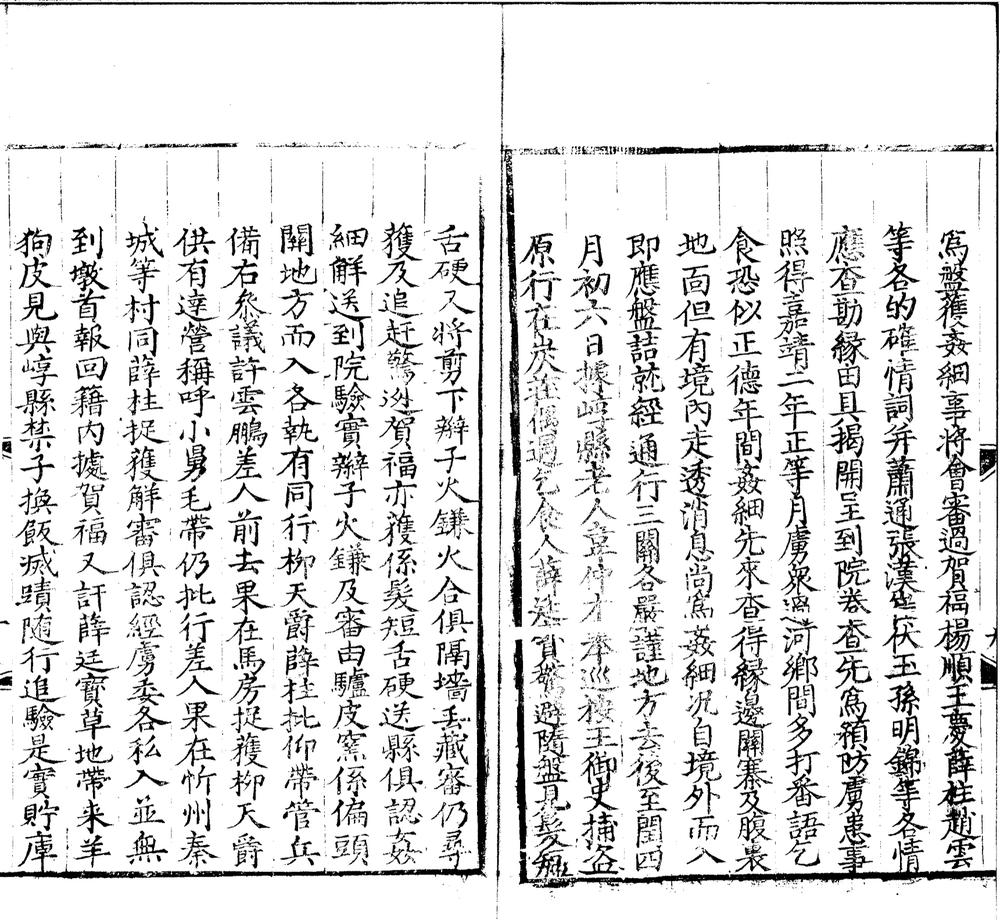 為盤獲姦細事將會審過賀福楊順王慶薛柱趙雲
等各的確情詞并蕭通張漢生茯玉孫明錦等各情
應查勘緣由具揭開呈到院卷查先為預防虜患事
照得嘉靖二年正等月虜衆過河鄉間多打番語乞
食恐似正德年間姦細先來查得緣邊關寨及腹裏
地面但有境內走透消息尚為姦細况自境外而入
即應盤詰就經通行三關各嚴謹地方去後至閏四
月初六日據崞縣老人韋仲才奉巡按王御史捕盜
原行在莊偶過乞食人薛廷寶驚避隨盤見髮短
舌硬又將剪下辮子火鐮火合俱隔墻丢藏審仍尋
獲及追赶驚迯賀福亦獲係髮短舌硬送縣俱認姦
細解送到院驗實辮子火鐮及審由驢皮窯係偏頭
關地方而入各執有同行柳天爵薛柱批仰帶管兵
備右叅議許雲鵬差人前去果在馬房捉獲柳天爵
供有達營稱呼小舅毛帶仍批行差人果在忻州秦
城等村同薛柱捉獲解審俱認經虜委各私入並無
到墩首報回籍內據賀福又訐薛廷寶草地帶来羊
狗皮見與崞縣禁子換飯滅蹟随行追驗是實貯庫